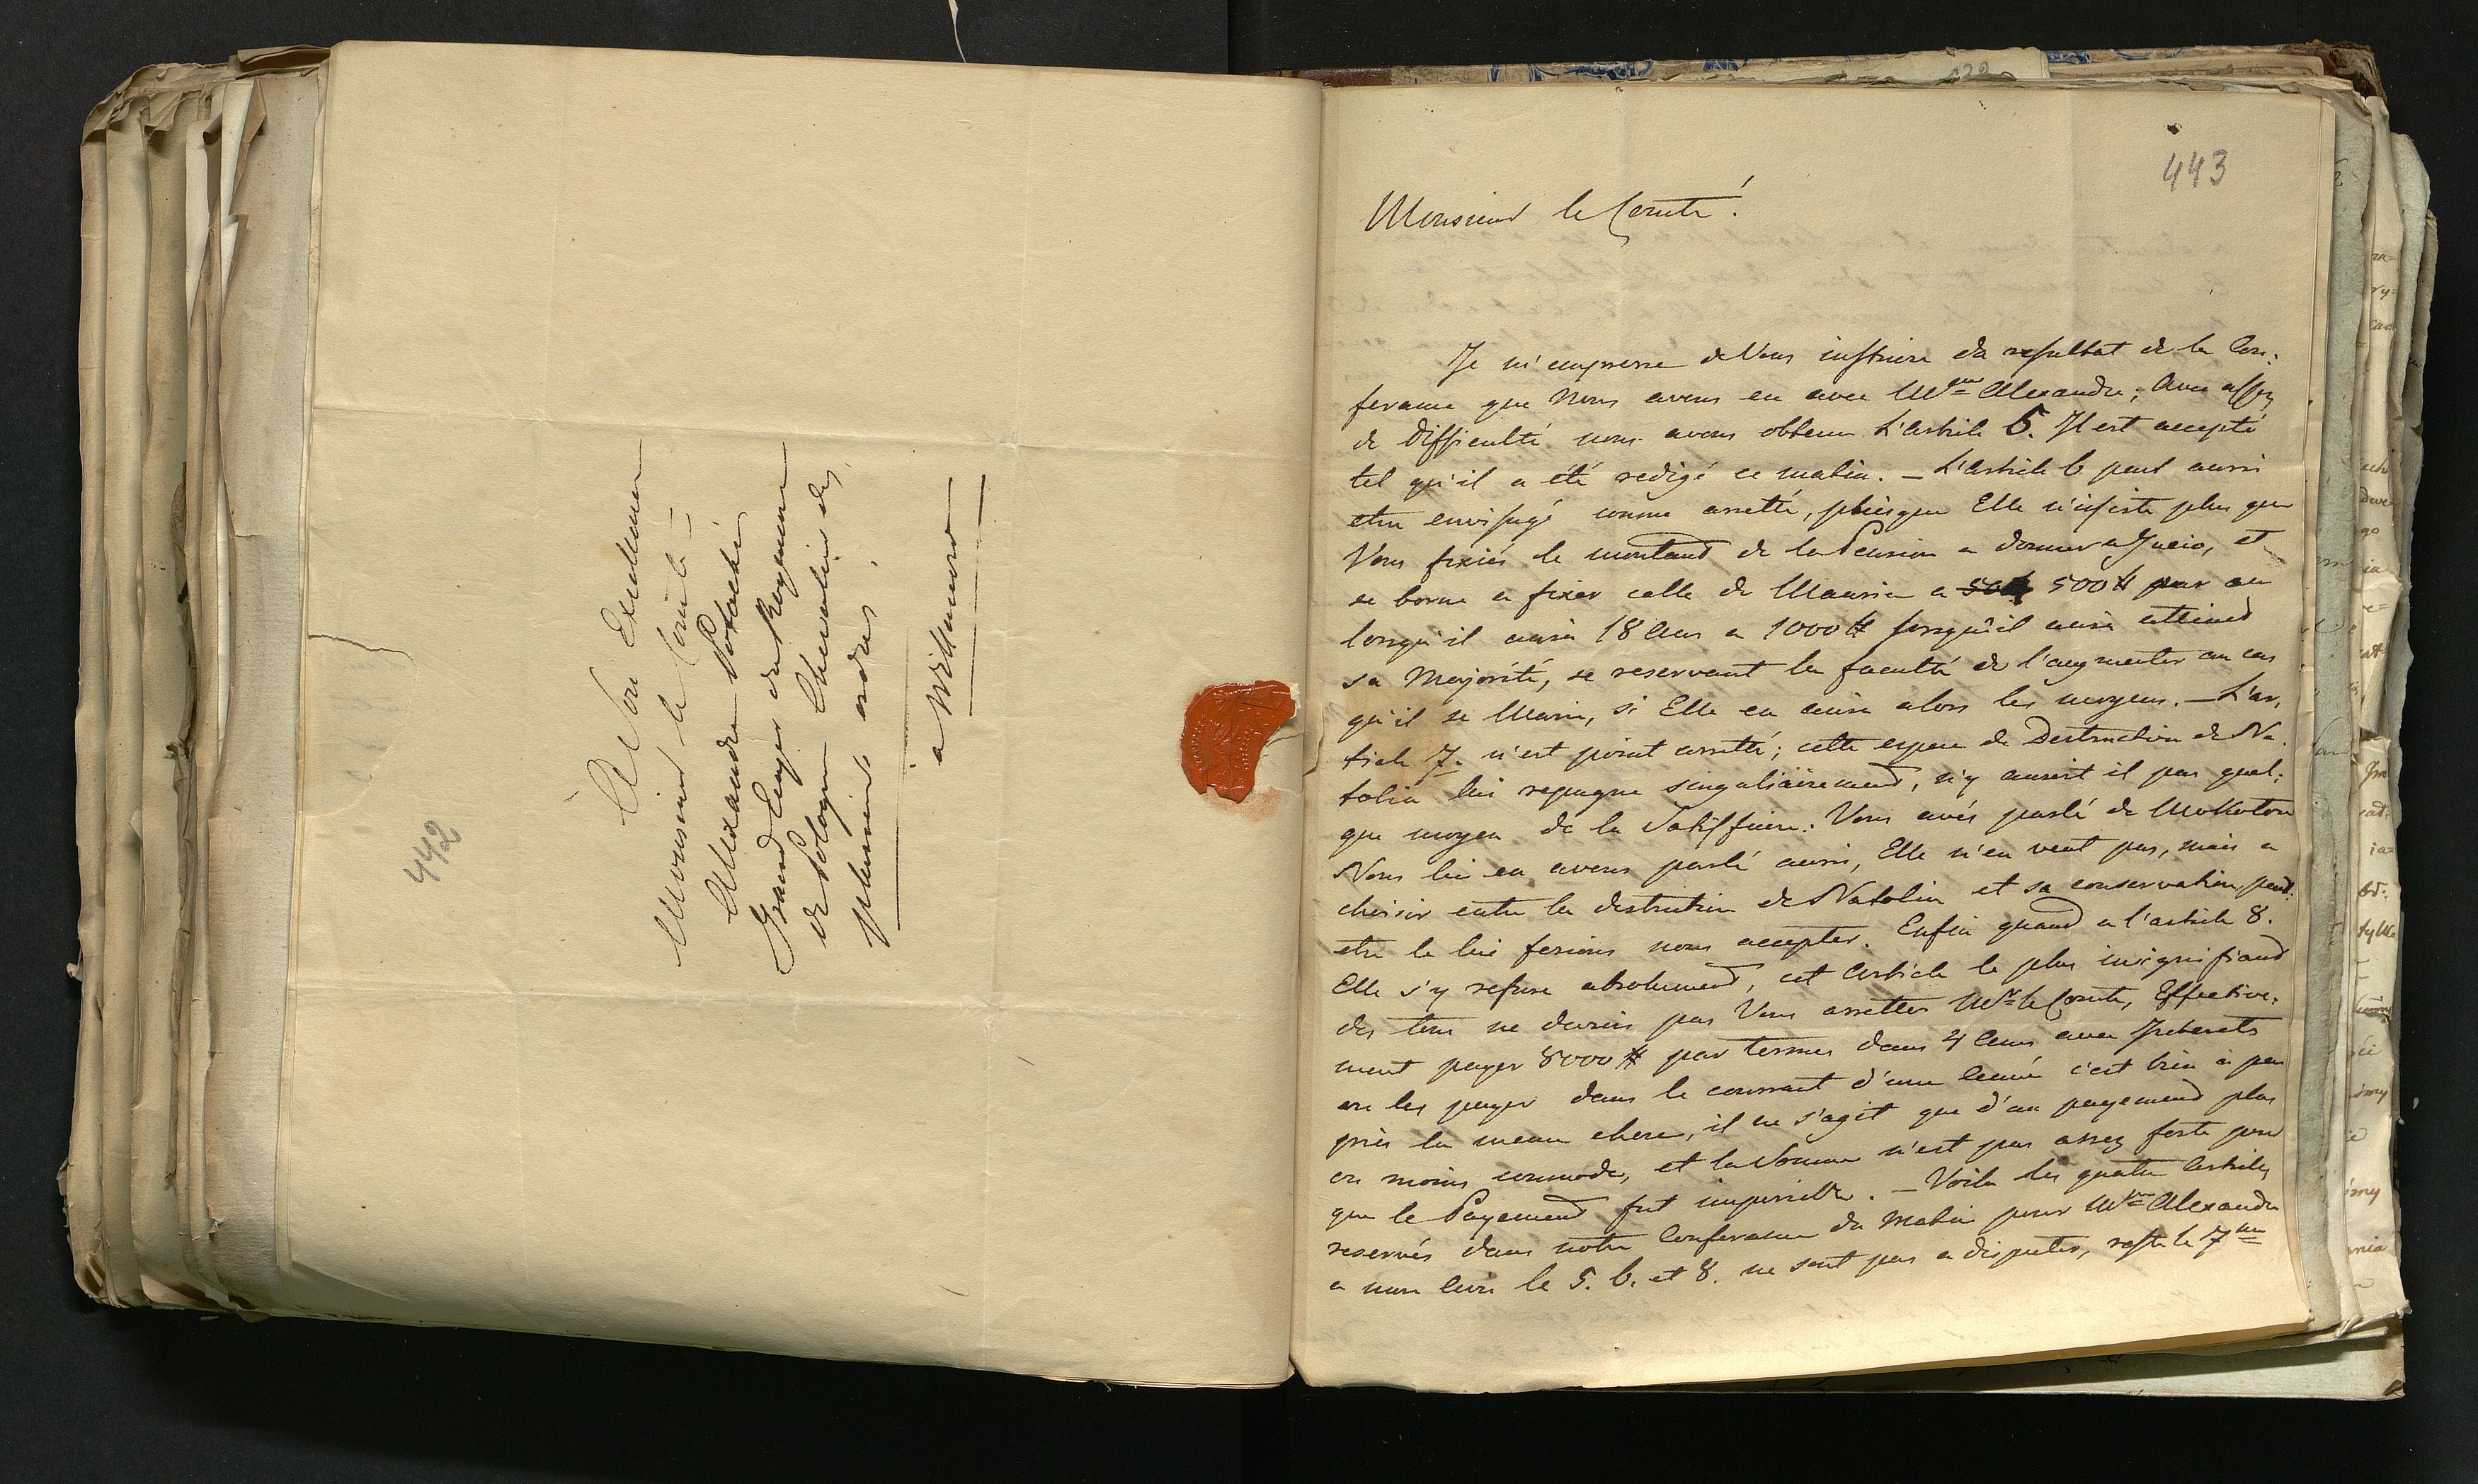 442
A Son Excellence
Monsieur le Comte
Alexandre Potocki
Grand Ecuyer du Royaume
de Pologne Chevalier des
plusieurs ordres,
a Willanow
443
Monsieur le Comte!
Je m'empresse de Vous instruire du resultat de la Con:
ferance que Nous avons eu avec Mdme Alexandre; Avec assez
de difficulté nous avons obtenu L'article 5. Il est accepté
tel qu'il a été redigé ce matin. – L'article 6 peut aussi
etre envisagé comme arretté, puisque Elle n'insiste plus que
Vous fixiés le montand de la Pension a donner a Gucio, et
se borne a fixer celle de Maurice a 500# par an
lorsqu'il aura 18 Ans a 1000# lorsqu'il aura atteind
sa Majorité, se reservant la faculté de l'augmenter au cas
qu'il se Marie, si Elle en aura alors les moyens. – L'ar,
ticle 7. n'est point arretté; cette espece de Destruction de Na:
tolin lui repugne singulièrement, n'y auroit il pas quel:
que moyen de la Satisfaire. Vous avés parlé de Mokotow
Nous lui en avons parlé aussi, Elle n'en veut pas, mais a
choisir entre la destruction de Natolin et sa conservation, peut:
etre le lui ferions nous accepter. Enfin quand a l'article 8.
Elle s'y refuse absolument, cet Article le plus insignifiand
des tous ne devroit pas Vous arretter Mr le Comte, Effective:
ment payer 8000# par termes dans 4 Ans avec Interets
ou les payer dans le courrant d'une année c'est bien à peu
près la meme chose, il ne s'agit que d'un payement plus
ou moins commode, et la Somme n'est pas assez forte pour
que le Payement fut impossible. – Voila les quatre Articles
reservés dans notre Conferance du Matin pour Mdme Alexandre
a mon avis le 5. 6. et 8. ne sont pas a disputer, reste le 7me